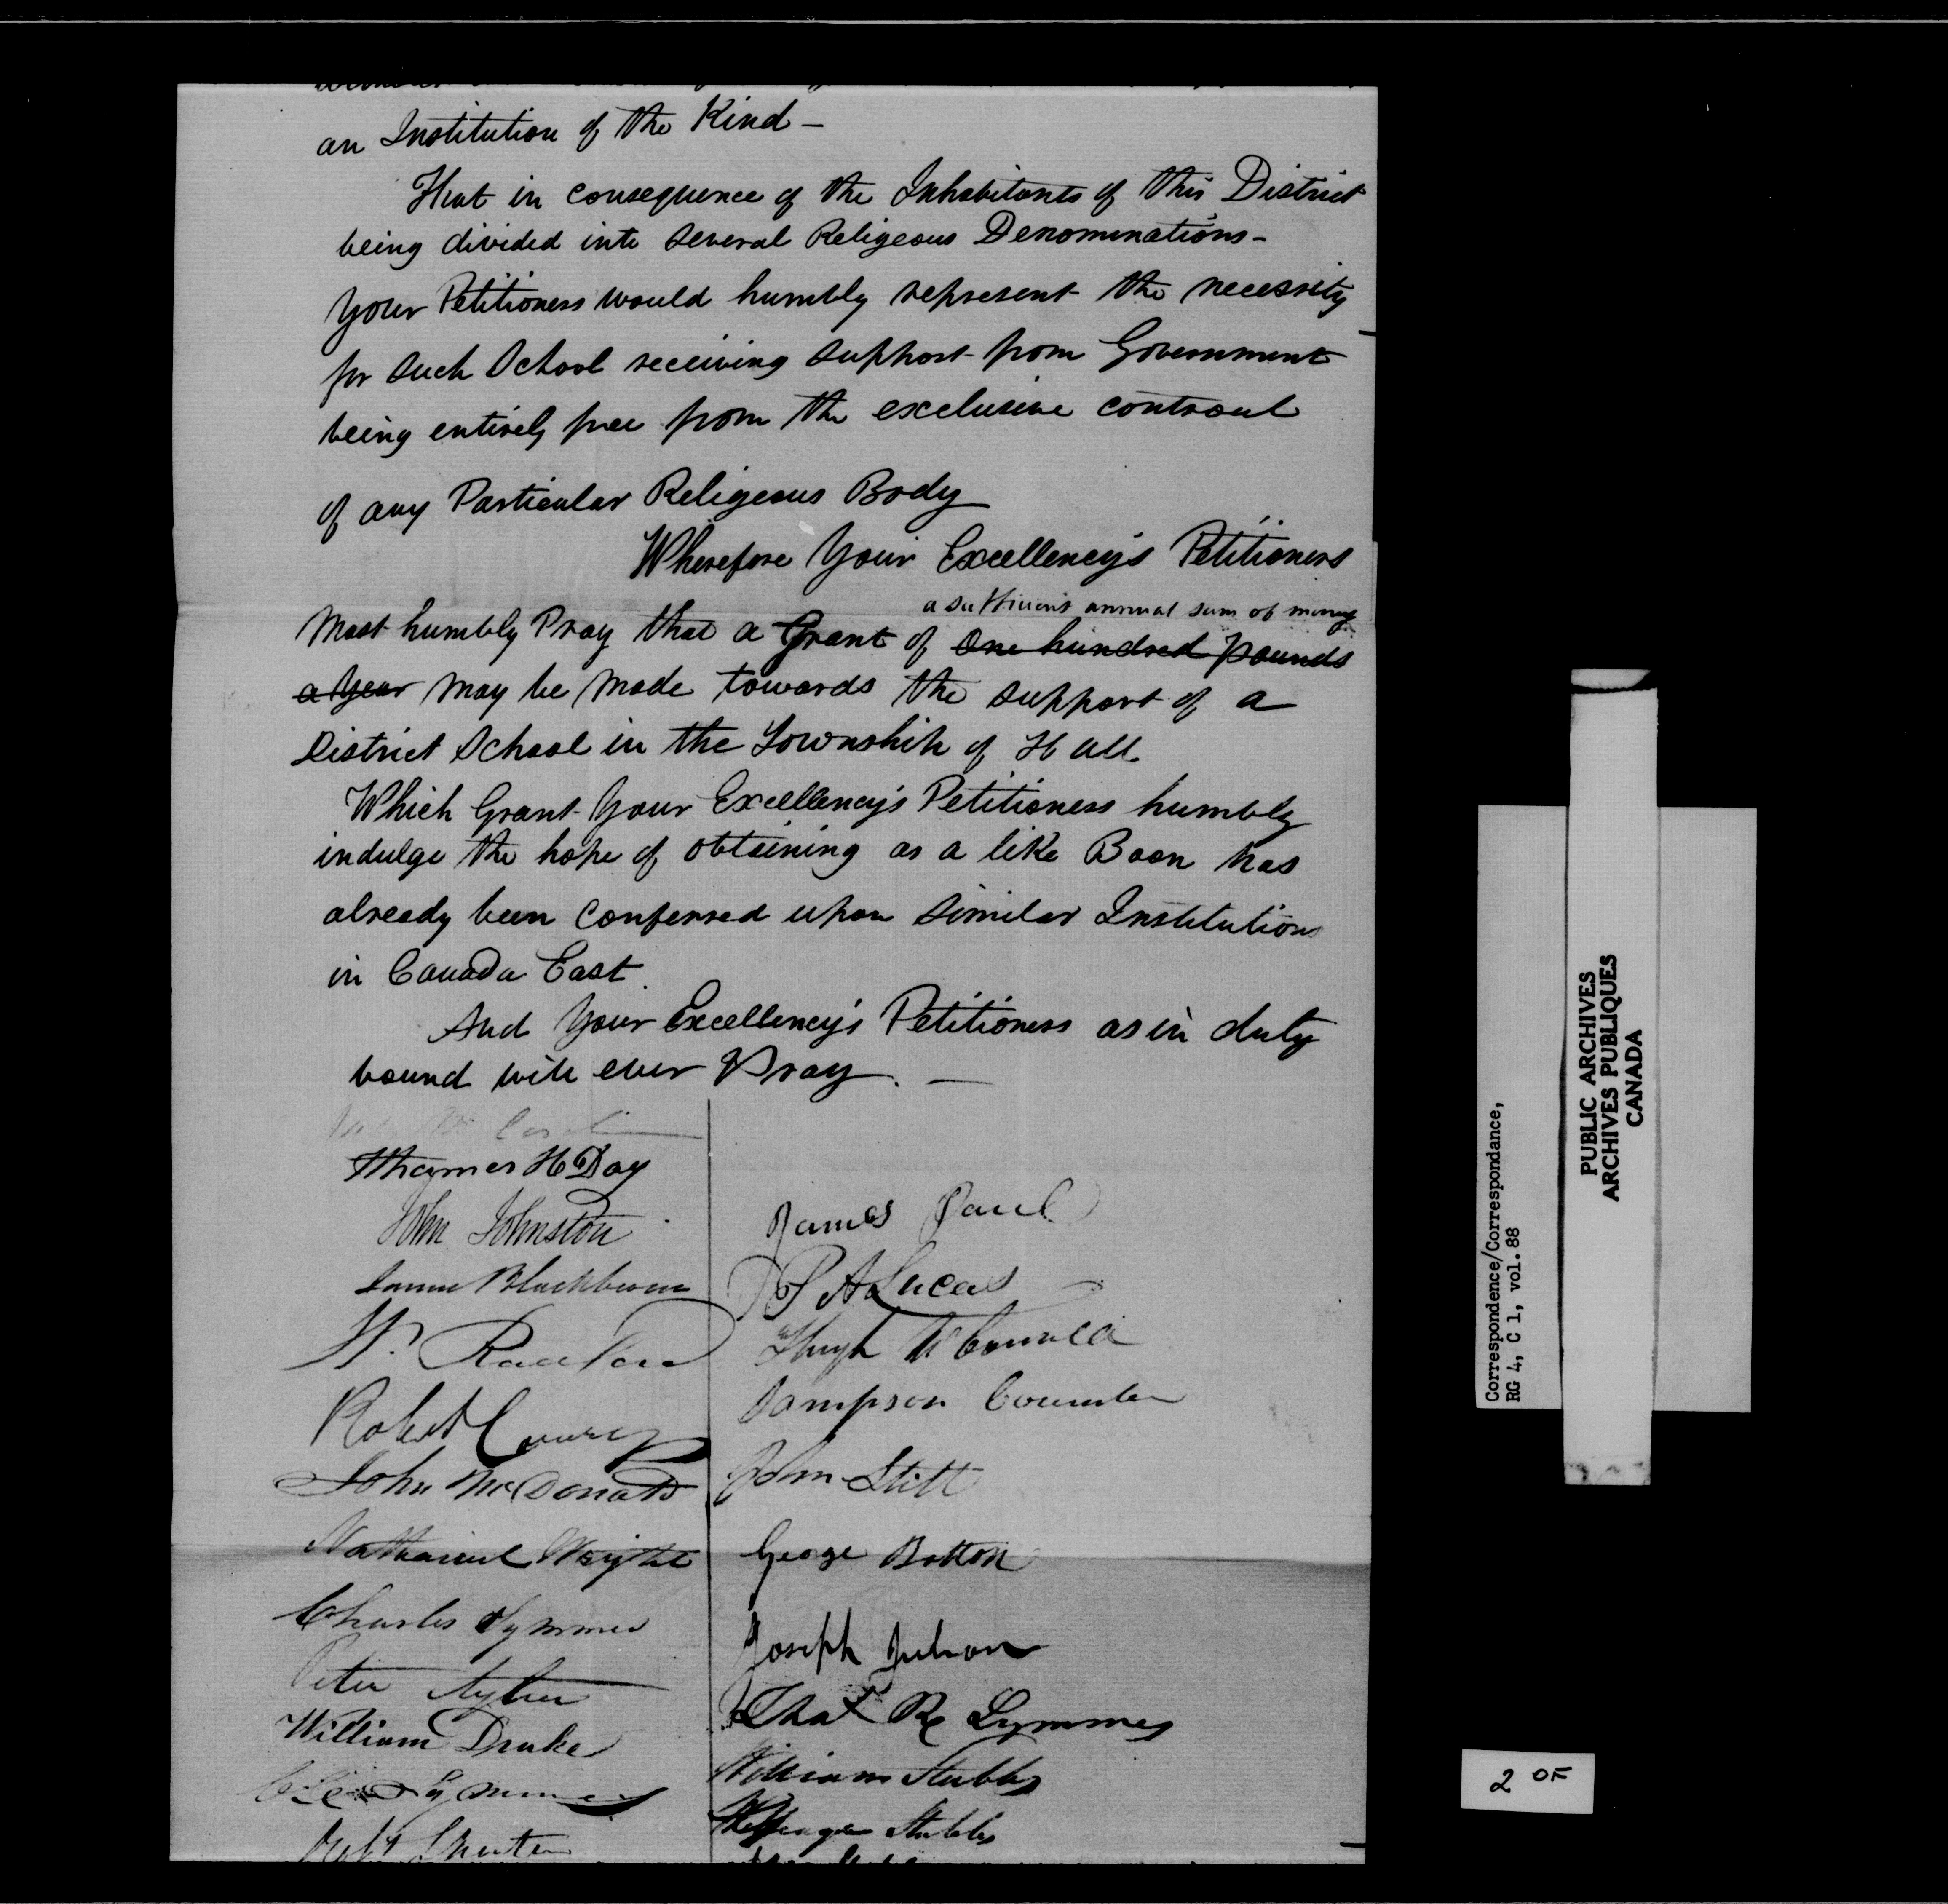 an Institution of the Kind –
That in consequence of the Inhabitants of this District
being divided into several Religeous Denominations –
Your Petitioners would humbly represent the necessity
for such School receiving support from Government
being entirely free from the exclusive controul
of any Particular Religeous Body
Wherefore Your Excellency's Petitioners
a sufficient annual sum of money
Most humbly Pray that a Grant of One hundred pounds
a Year may be made towards the support of a
District School in the Township of Hull
Which Grant Your Excellency's Petitioners humbly
indulge the hope of obtaining as a like Boon has
already been conferred upon similar Institutions
in Canada East.
And Your Excellency's Petitioners as in duty
bound will ever Pray. —
Thomas H Day
John Johnston
James Blackburn
Robert
John McDonald
Nathaniel Wright
Charles Symmes
Peter Aylen
William Drake
Symmes
James Paul
A Lucas
Hugh
Sampson
John Stitt
George Botton
Joseph
Cha R Symmes
William Stubbs
Stubbs
Correspondence/Correspondance,
RG 4, C 1, vol. 88
PUBLIC ARCHIVES
ARCHIVES PUBLIQUES
CANADA
2 OF